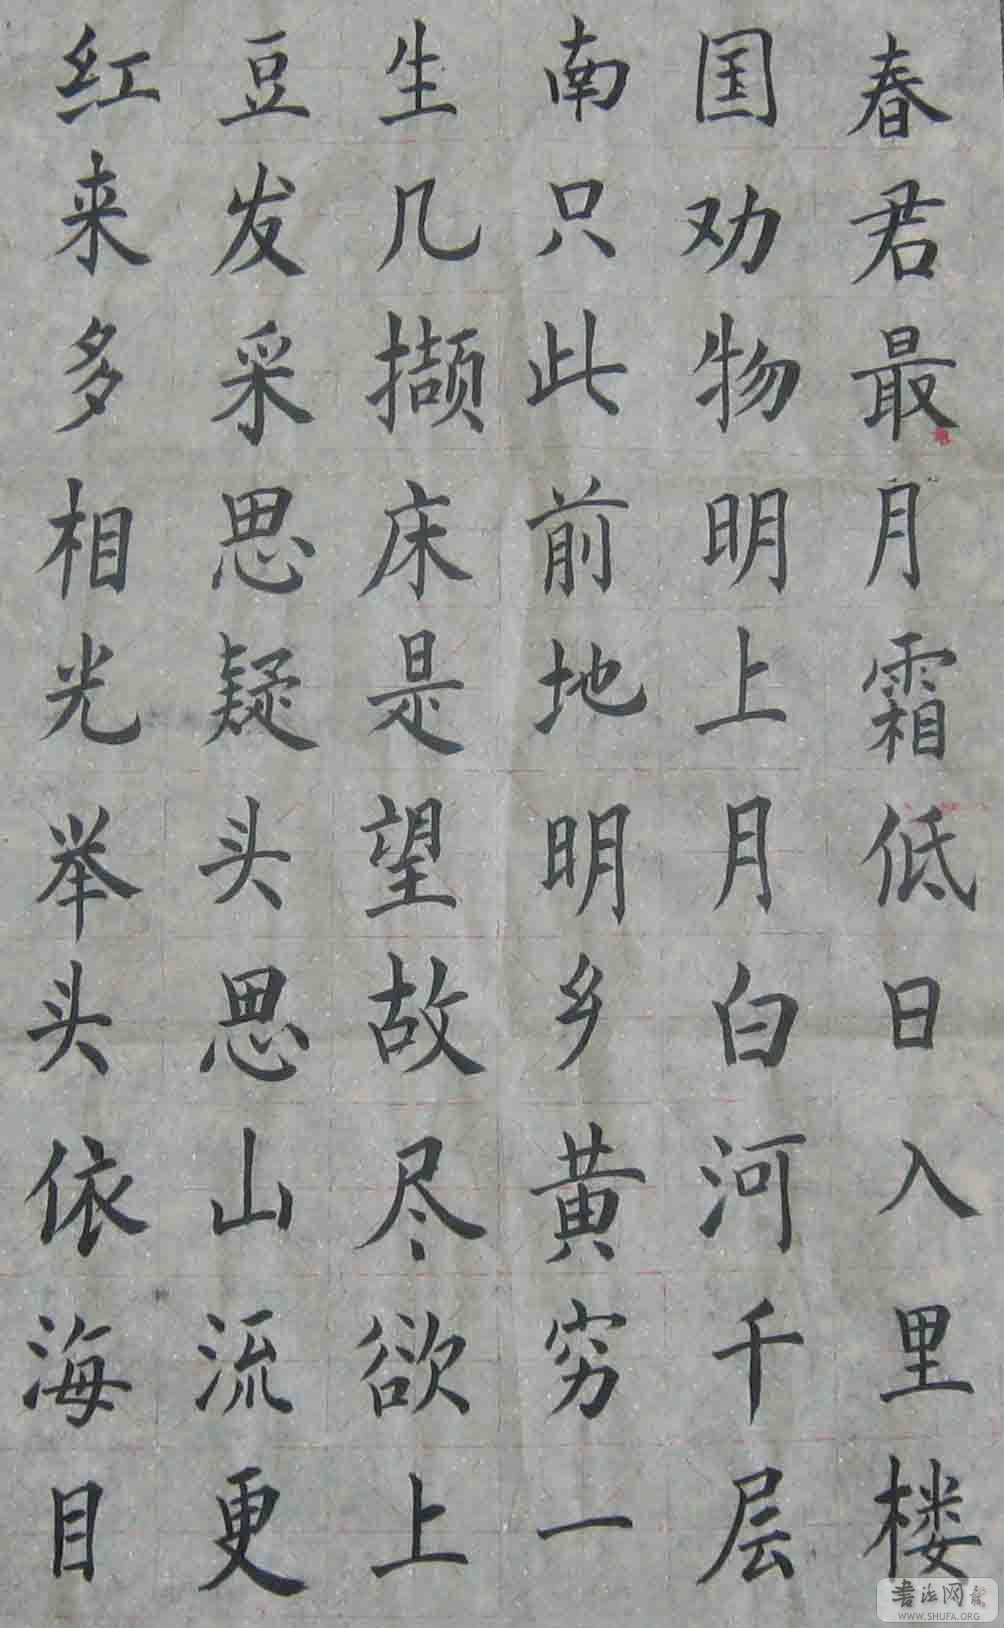 红豆生南国春
来发几只劝君
多采撷此物最
相思床前明月
光疑是地上霜
举头望明月低
头思故乡白日
依山尽黄河入
海流欲穷千里
目更上一层楼
書法网
WWW.SHUFA.ORG